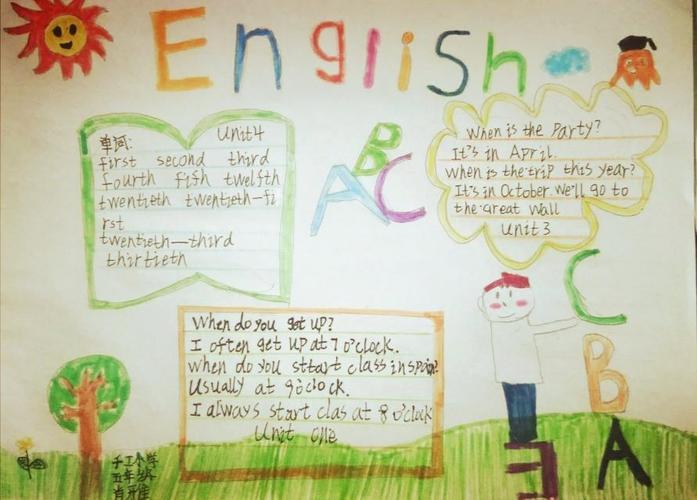 English
单词: Unit4
first second third
fourth fifth twelfth
twentieth twentieth-fi
rst
twentieth—third
thirtieth
ABC
When is the Party?
It's in April.
When is the trip this year?
It's in October. We'll go to
the Great Wall
Unit 3
When do you get up?
I often get up at 7 o'clock.
when do you sttart class in spain?
Usually at 9 o'clock.
I always start clas at 8 o'clock
Unit one
C
B
A
五年